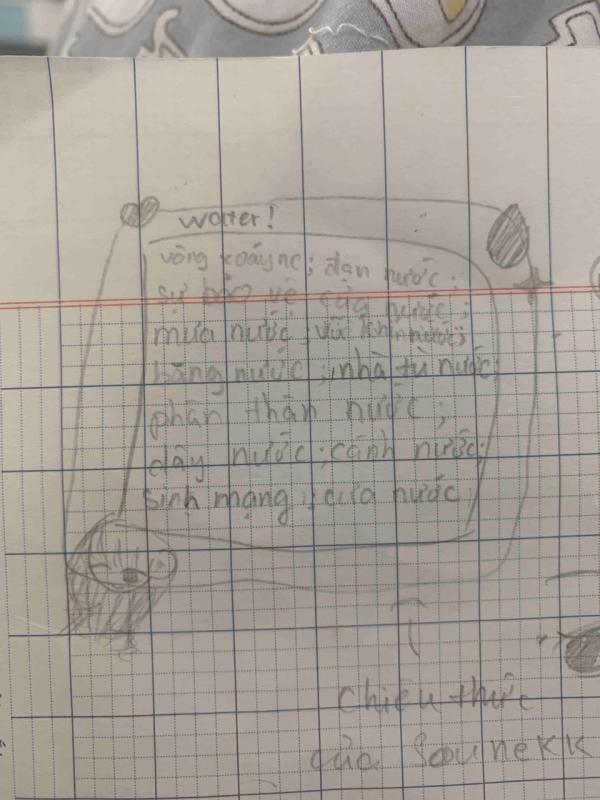 watter!
vòng xoáy nc; đạn nước;
sự bảo vệ của nước;
mưa nước; vũ khí nước;
băng nước; nhà tù nước;
phân thân nước;
dây nước; cánh nước;
sinh mạng của nước
chiêu thức
của SouneKK